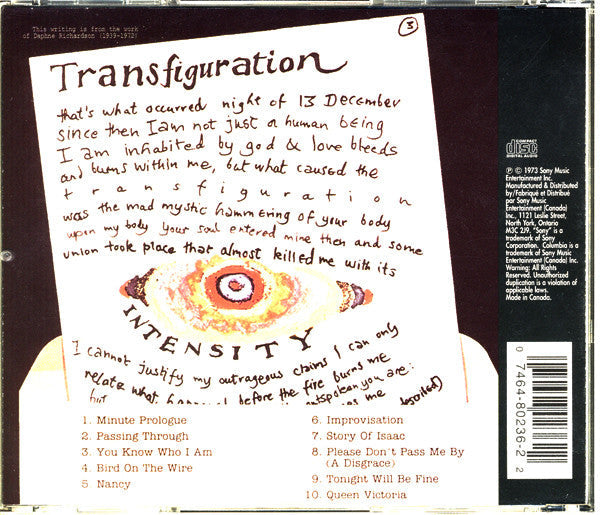 This writing is from the work
of Daphne Richardson (1939-1972)
3
Transfiguration
that's what occurred night of 13 December
since then I am not just a human being
I am inhabited by god & love bleeds
and burns within me, but what caused the
transfiguration
was the mad mystic hammering of your body
upon my body your soul entered mine then and some
union took place that almost killed me with its
INTENSITY
I cannot justify my outrageous claims I can only
relate what before the fire burns me
but outspoken you are:
me described)
1. Minute Prologue
2. Passing Through
3. You Know Who I Am
4. Bird On The Wire
5. Nancy
6. Improvisation
7. Story Of Isaac
8. Please Don't Pass Me By
(A Disgrace)
9. Tonight Will Be Fine
10. Queen Victoria
COMPACT
disc
DIGITAL AUDIO
℗ © 1973 Sony Music
Entertainment Inc.
Manufactured & Distributed
by/Fabriqué et Distribué
par Sony Music
Entertainment (Canada)
Inc., 1121 Leslie Street,
North York, Ontario
M3C 2J9. "Sony" is a
trademark of Sony
Corporation. Columbia is a
trademark of Sony Music
Entertainment (Canada) Inc.
Warning: All Rights
Reserved. Unauthorized
duplication is a violation of
applicable laws.
Made in Canada.
0 7464-80236-2 2